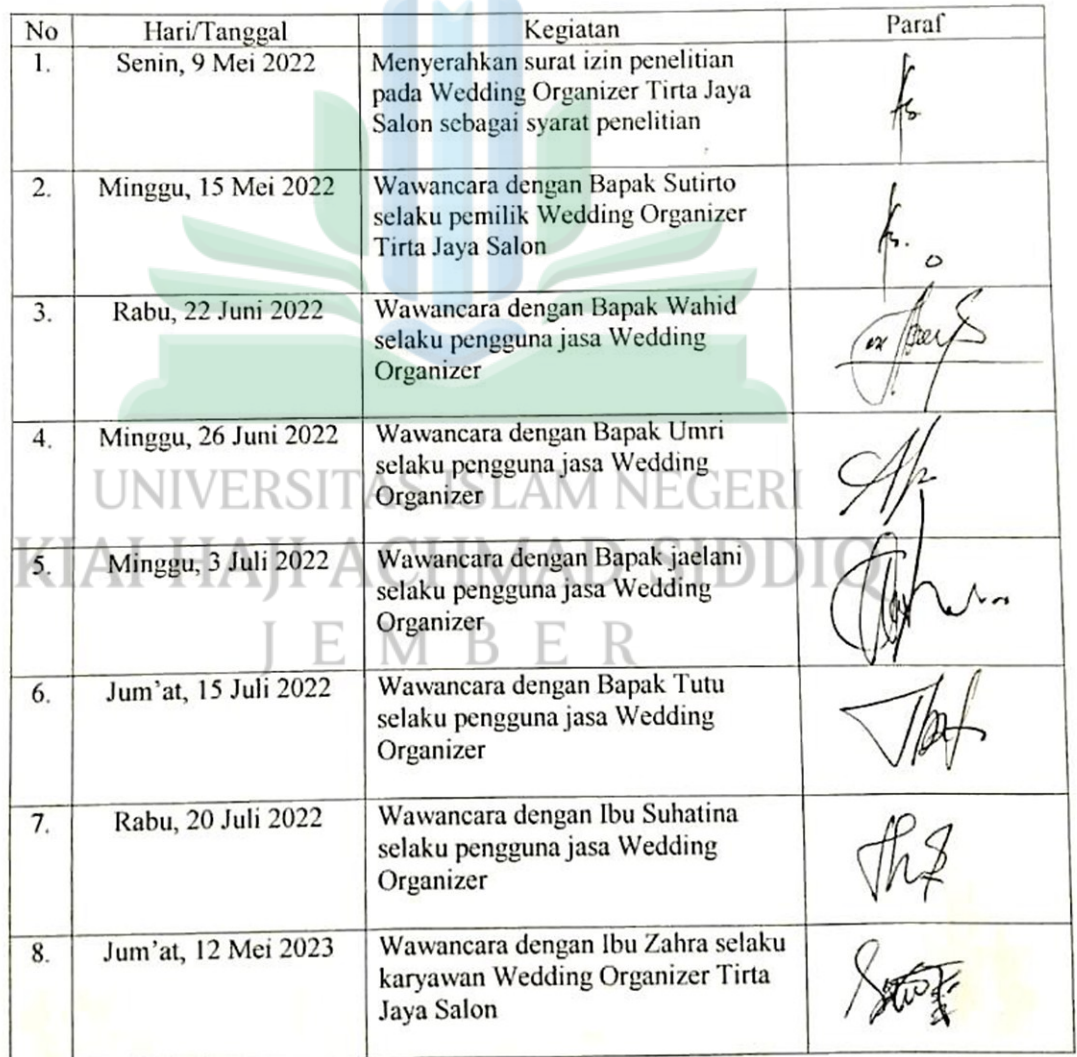 No Hari/Tanggal Kegiatan Paraf
1. Senin, 9 Mei 2022 Menyerahkan surat izin penelitian
pada Wedding Organizer Tirta Jaya
Salon sebagai syarat penelitian
2. Minggu, 15 Mei 2022 Wawancara dengan Bapak Sutirto
selaku pemilik Wedding Organizer
Tirta Jaya Salon
3. Rabu, 22 Juni 2022 Wawancara dengan Bapak Wahid
selaku pengguna jasa Wedding
Organizer
4. Minggu, 26 Juni 2022 Wawancara dengan Bapak Umri
selaku pengguna jasa Wedding
Organizer
UNIVERSITAS ISLAM NEGERI
5. Minggu, 3 Juli 2022 Wawancara dengan Bapak jaelani
selaku pengguna jasa Wedding
Organizer
KIAI HAJI ACHMAD SIDDIQ
JEMBER
6. Jum'at, 15 Juli 2022 Wawancara dengan Bapak Tutu
selaku pengguna jasa Wedding
Organizer
7. Rabu, 20 Juli 2022 Wawancara dengan Ibu Suhatina
selaku pengguna jasa Wedding
Organizer
8. Jum'at, 12 Mei 2023 Wawancara dengan Ibu Zahra selaku
karyawan Wedding Organizer Tirta
Jaya Salon